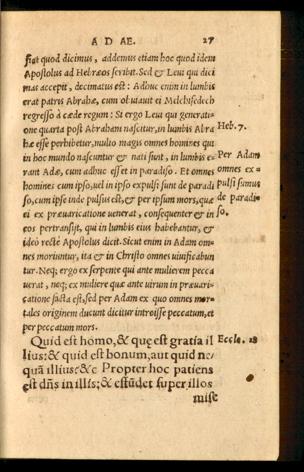 A D AE. 27
fiat quod dicimus, addemus etiam hoc quod idem
Apostolus ad Hebræos scribit. Sed & Leui qui deci
mas accepit, decimatus est: Adhuc enim in lumbis
erat patris Abrahæ, cum obuiauit ei Melchisedech
regresso à cæde regum: Si ergo Leui qui generati-
one quarta post Abraham nascitur, in lumbis Abra
hæ esse perhibetur, multo magis omnes homines qui
in hoc mundo nascuntur & nati sunt, in lumbis e-
rant Adæ, cum adhuc esset in paradiso. Et omnes
homines cum ipso, uel in ipso expulsi sunt de paradi
so, cum ipse inde pulsus est, & per ipsum mors, quæ
ei ex præuaricatione uenerat, consequenter & in
eos pertransijt, qui in lumbis eius habebantur, &
ideo rectè Apostolus dicit. Sicut enim in Adam om-
nes moriuntur, ita & in Christo omnes uiuificabun
tur. Neq; ergo ex serpente qui ante mulierem pecca
uerat, neq; ex muliere quæ ante uirum in præuari-
catione facta est, sed per Adam ex quo omnes mor-
tales originem ducunt dicitur introisse peccatum, et
per peccatum mors.
Quid est homo, & quę est gratia il
lius: & quid est bonum, aut quid ne/
quā illius: &c Propter hoc patiens
est dñs in illis; & effūdet super illos
misc
Heb. 7.
Per Adam
omnes ex-
pulsi sumus
de paradi-
so.
Eccle. 18